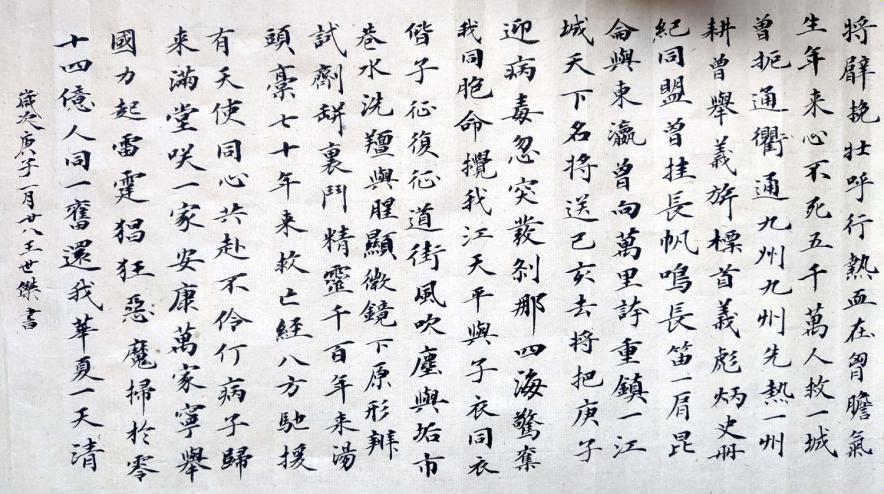 將臂挽壯呼行熱血在胷膽氣
生年来心不死五千萬人救一城
曾扼通衢通九州九州先熱一州
耕曾舉義旂標首義彪炳史冊
紀同盟曾挂長帆鳴長笛一肩昆
侖與東瀛曾向萬里誇重鎮一江
城天下名将送己亥去将把庚子
迎病毒忽突發剎那四海驚奪
我同胞命攪我江天平與子衣同衣
偕子征復征道街風吹塵與垢市
巷水洗羶與腥顯微鏡下原形辨
試劑缾裏鬥精靈千百年来湯
頭藁七十年来救亡經八方馳援
有天使同心共赴不伶仃病子歸
来滿堂咲一家安康萬家寧舉
國力起雷霆猖狂惡魔掃於零
十四億人同一奮還我華夏一天清
歲次庚子一月廿八王世傑書